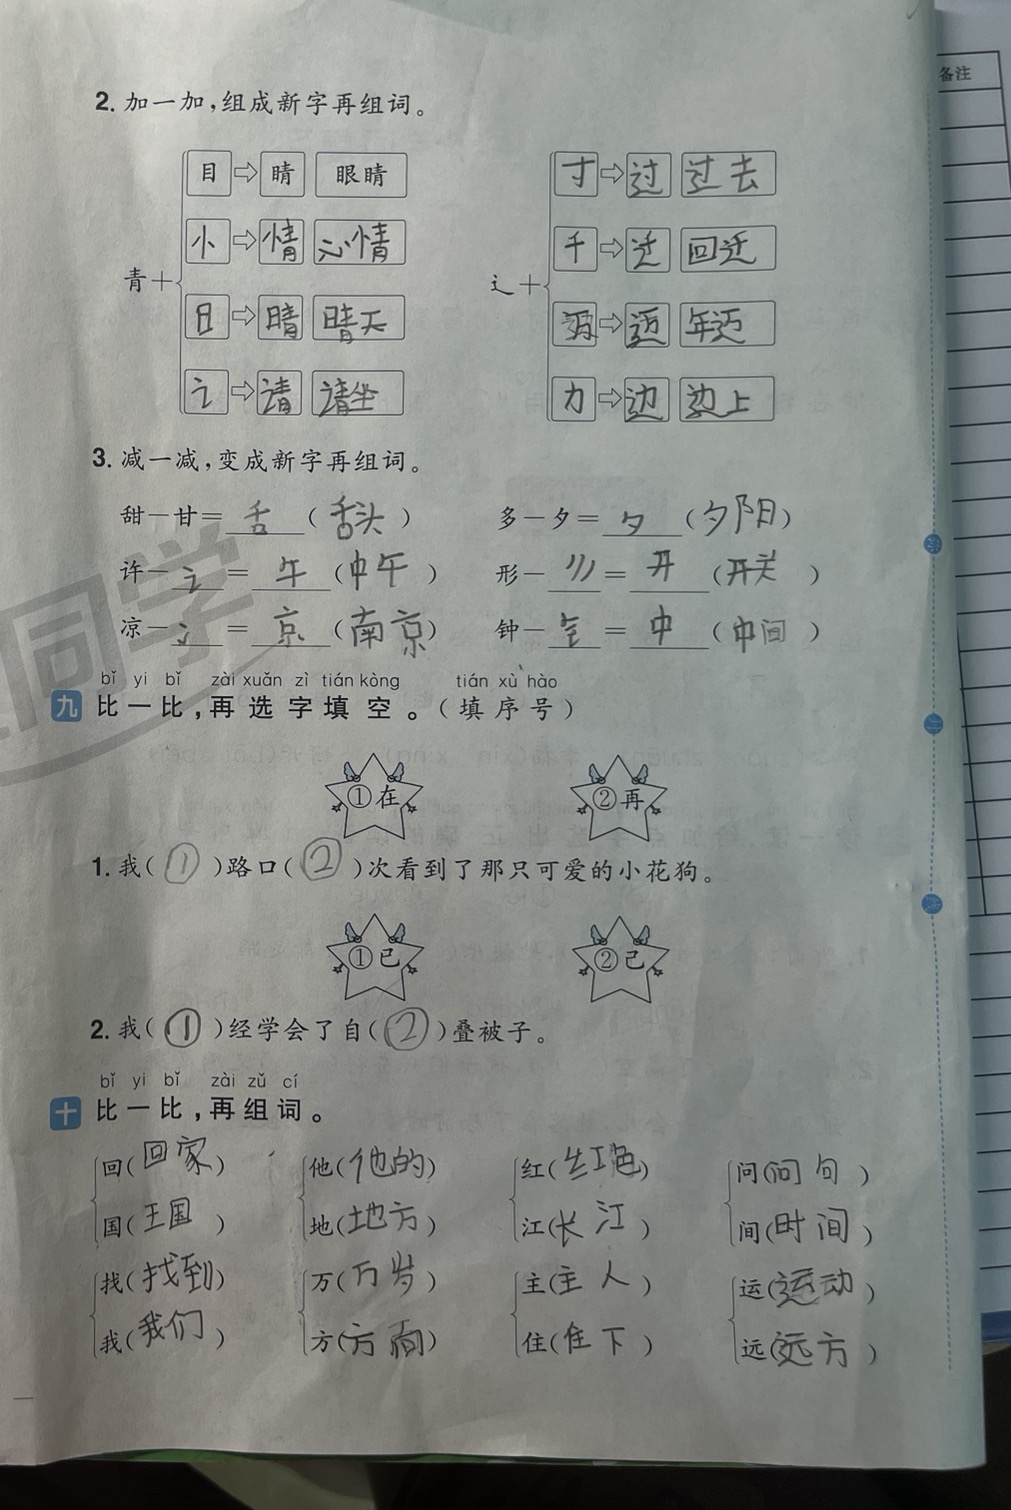 备注
2. 加一加,组成新字再组词。
目 睛 眼睛 寸 过 过去
忄 情 心情 千 迁 回迁
青+ 辶+
日 晴 晴天 迈 年迈
讠 请 请坐 力 边 边上
3. 减一减,变成新字再组词。
甜-甘=舌(舌头) 多-夕=夕(夕阳)
许-讠=午(中午) 形-彡=开(开关)
凉-冫=京(南京) 钟-钅=中(中间)
同学
bǐ yi bǐ zài xuǎn zì tián kòng tián xù hào
九 比一比,再选字填空。(填序号)
①在 ②再
1. 我(①)路口(②)次看到了那只可爱的小花狗。
①已 ②己
2. 我(①)经学会了自(②)叠被子。
bǐ yi bǐ zài zǔ cí
十 比一比,再组词。
回(回家) 他(他的) 红(红色) 问(问句)
国(王国) 地(地方) 江(长江) 间(时间)
找(找到) 万(万岁) 主(主人) 运(运动)
我(我们) 方(方面) 住(住下) 远(远方)